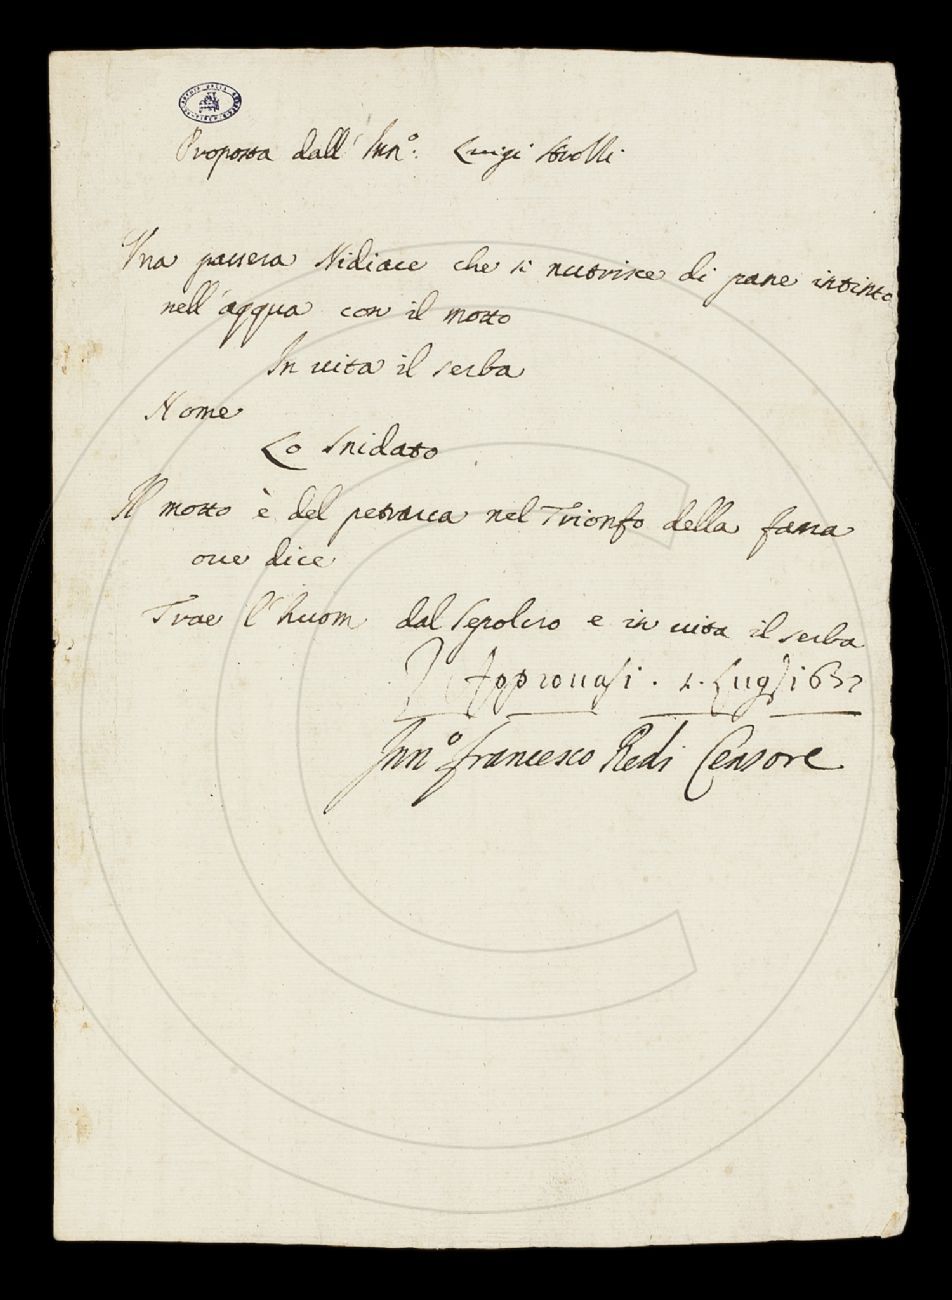 Proposta dall' Inn.º: Luigi Strozzi
Una passera Nidiace che si nutrisce di pane intinto
nell'acqua con il motto
In vita il serba
Nome
Lo Snidato
Il motto è del petrarca nel Trionfo della fama
oue dice
Trae l'huom dal Sepolcro e in uita il serba
Approuasi. 2. Lugl i65
Innº. francesco Redi Censore